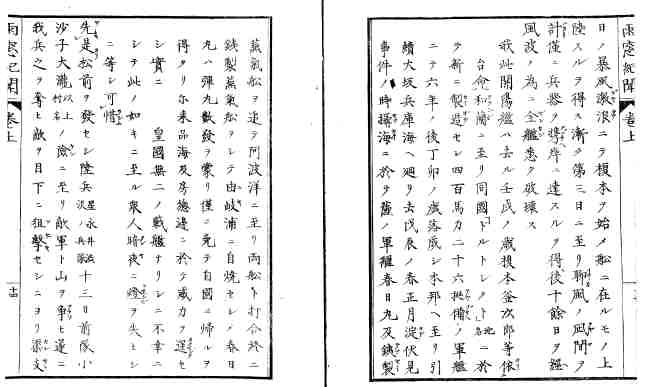 雨窓紀聞 巻上
日ノ暴風激浪ニテ榎本ヲ始メ船ニ在ルモノ上
陸スルヲ得ス漸ク第三日ニ至リ聊風ノ凪間ヲ
計僅ニ兵器ヲ携岸ニ達スルヲ得後十餘日ヲ經
風波ノ為ニ全艦悉ク破壊ス
我此開陽艦ハ去ル壬戌ノ歳榎本釜次郎等依
台命和蘭ニ至リ同國ドルトレクト地名ニ於
テ新ニ製造セシ四百馬力二十六挺備ノ軍艦
ニテ六年ノ後丁卯ノ歳落成シ本邦ヘ至リ引
續大坂兵庫海ヘ廻リ去戊辰ノ春正月淀伏見
事件ノ時攝海ニ於テ薩ノ軍艦春日丸及鉄製
蒸氣船ヲ追テ阿波洋ニ至リ両船ト打合終ニ
鉄製蒸氣船ヲシテ由岐浦ニ自焼セシメ春日
丸ハ彈丸數發ヲ蒙リ僅ニ免テ自國ニ帰ルヲ
得タリ尓来品海及房總邊ニ於テ威力ヲ逞セ
シ實ニ 皇國無二ノ戦艦ナリシニ不幸ニ
シテ此ノ如キニ至ル衆人暗夜ニ燈ヲ失セシ
ニ等シ可惜
先是松前ヲ發セシ陸兵星永井浜沢ノ兵隊十三日前隊小
沙子大瀧以上村名ノ險ニ至リ敵軍ト山ヲ爭ヒ遂ニ
我兵之ヲ奪ヒ敵ヲ目下ニ狙撃セシニヨリ
雨窓紀聞 巻上